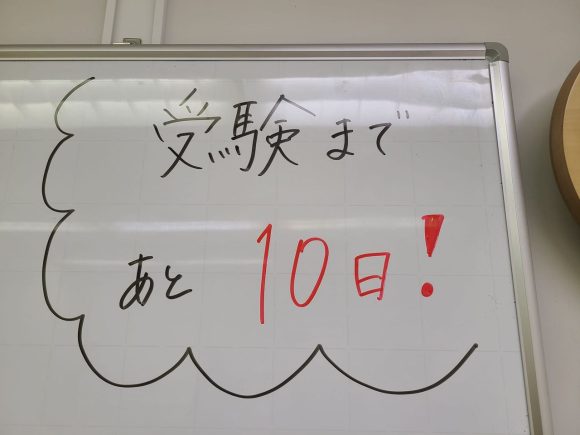 受験まで
あと 10日!